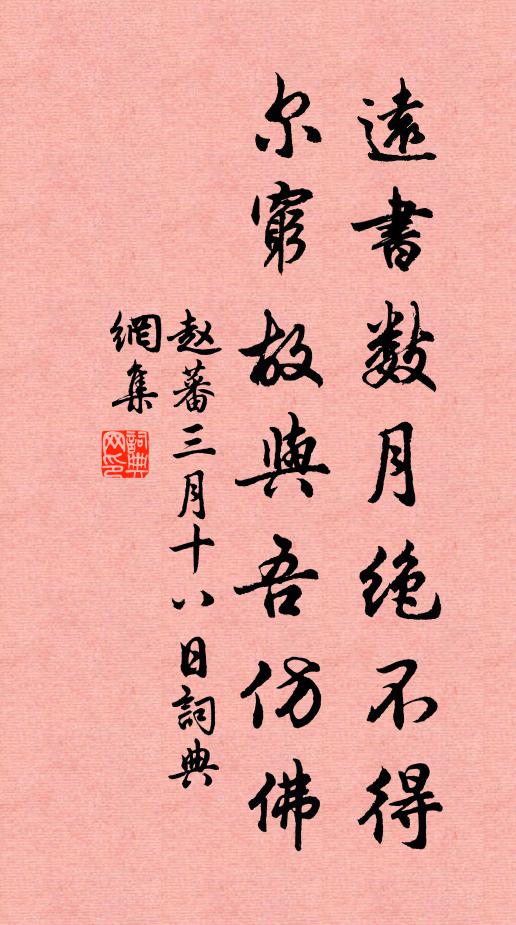 遠書数月绝不得
尔窮故與吾仿佛
赵蕃三月十八日詞典
網集
詞典
网印